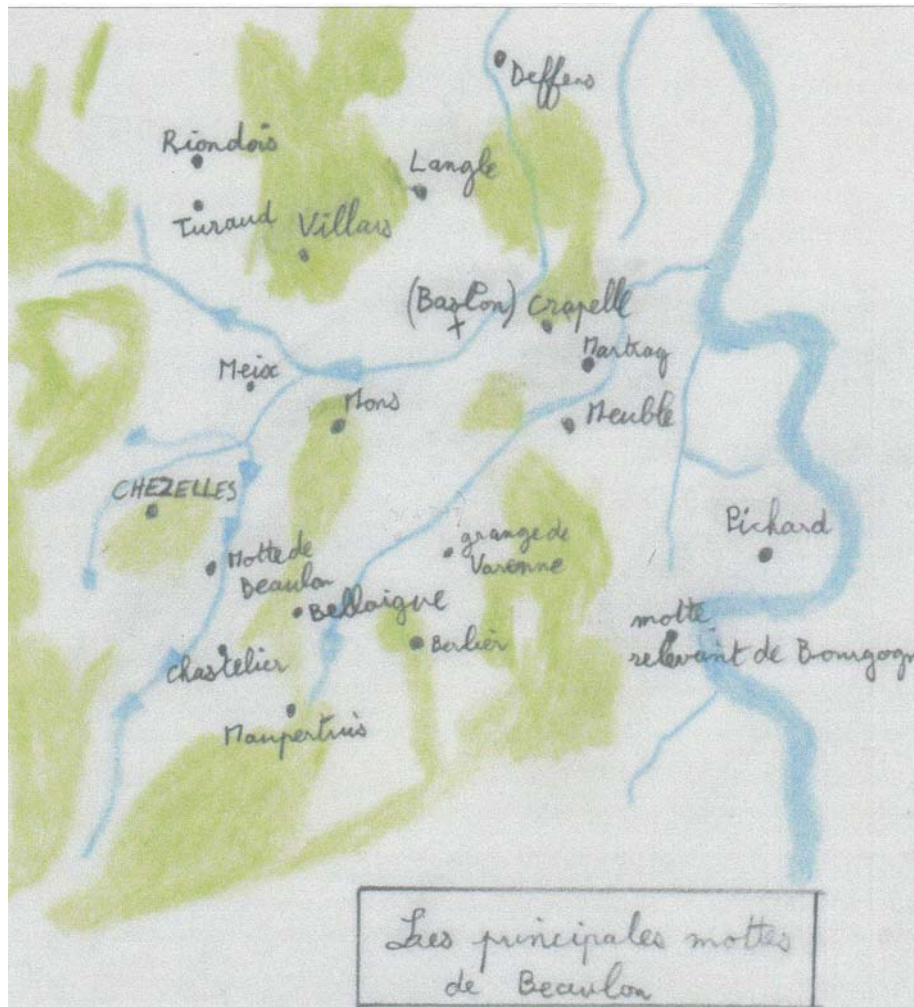 Deffens
Riondois
Langle
Turaud
Villars
(Baslon)
Crapelle
Martray
Meix
Mons
Meuble
CHEZELLES
Pichard
grange de
Varenne
Motte de
Beaulon
Bellaigue
motte
relevant de Bourgogn
Berlier
Chastelier
Maupertuis
Les principales mottes
de Beaulon